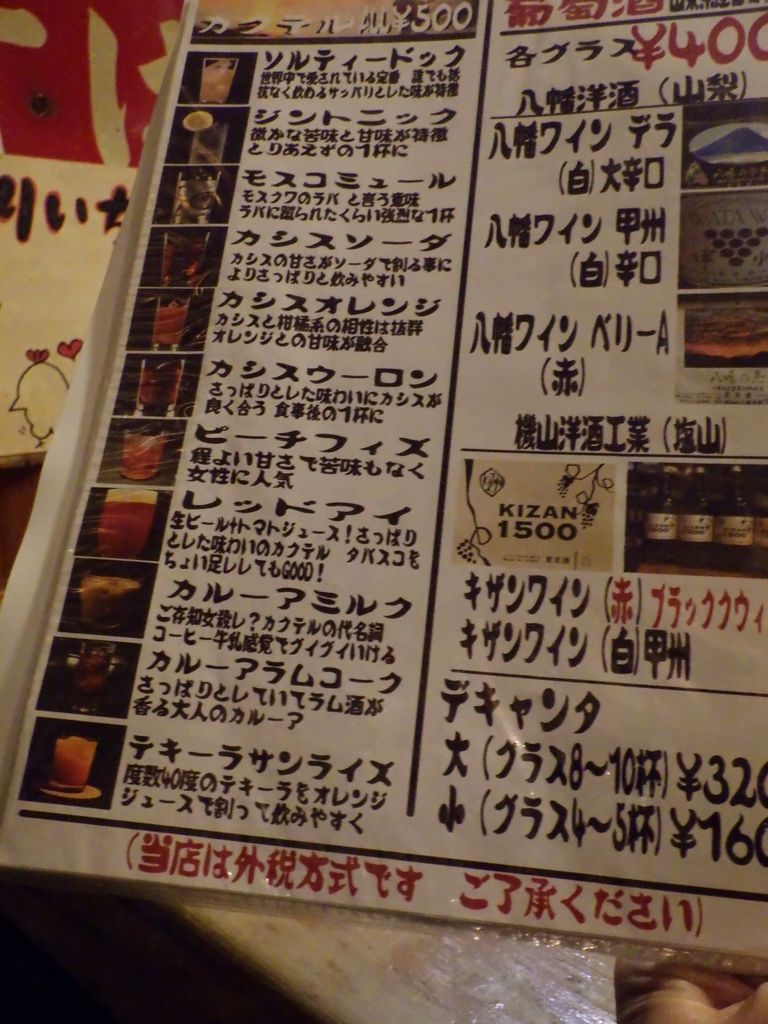 カクテル ¥500
ソルティードック
世界中で愛されている定番 誰でも抵
抗なく飲めるサッパリとした味が特徴
ジントニック
微かな苦味と甘味が特徴
とりあえずの1杯に
モスコミュール
モスクワのラバ と言う意味
ラバに蹴られたくらい強烈な1杯
カシスソーダ
カシスの甘さがソーダで割る事に
よりさっぱりと飲みやすい
カシスオレンジ
カシスと柑橘系の相性は抜群
オレンジとの甘味が融合
カシスウーロン
さっぱりとした味わいにカシスが
良く合う 食事後の1杯に
ピーチフィズ
程よい甘さで苦味もなく
女性に人気
レッドアイ
生ビール+トマトジュース!さっぱり
とした味わいのカクテル タバスコを
ちょい足ししてもGOOD!
カルーアミルク
ご存知女殺し?カクテルの代名詞
コーヒー牛乳感覚でグイグイいける
カルーアラムコーク
さっぱりとしていてラム酒が
香る大人のカルーア
テキーラサンライズ
度数40度のテキーラをオレンジ
ジュースで割って飲みやすく
葡萄酒
各グラス¥400
八幡洋酒(山梨)
八幡ワイン デラ
(白)大辛口
八幡ワイン 甲州
(白)辛口
八幡ワイン ベリーA
(赤)
機山洋酒工業(塩山)
KIZAN
1500
キザンワイン(赤)ブラッククウィ
キザンワイン(白)甲州
デキャンタ
大(グラス8〜10杯)¥320
小(グラス4〜5杯)¥160
(当店は外税方式です ご了承ください)